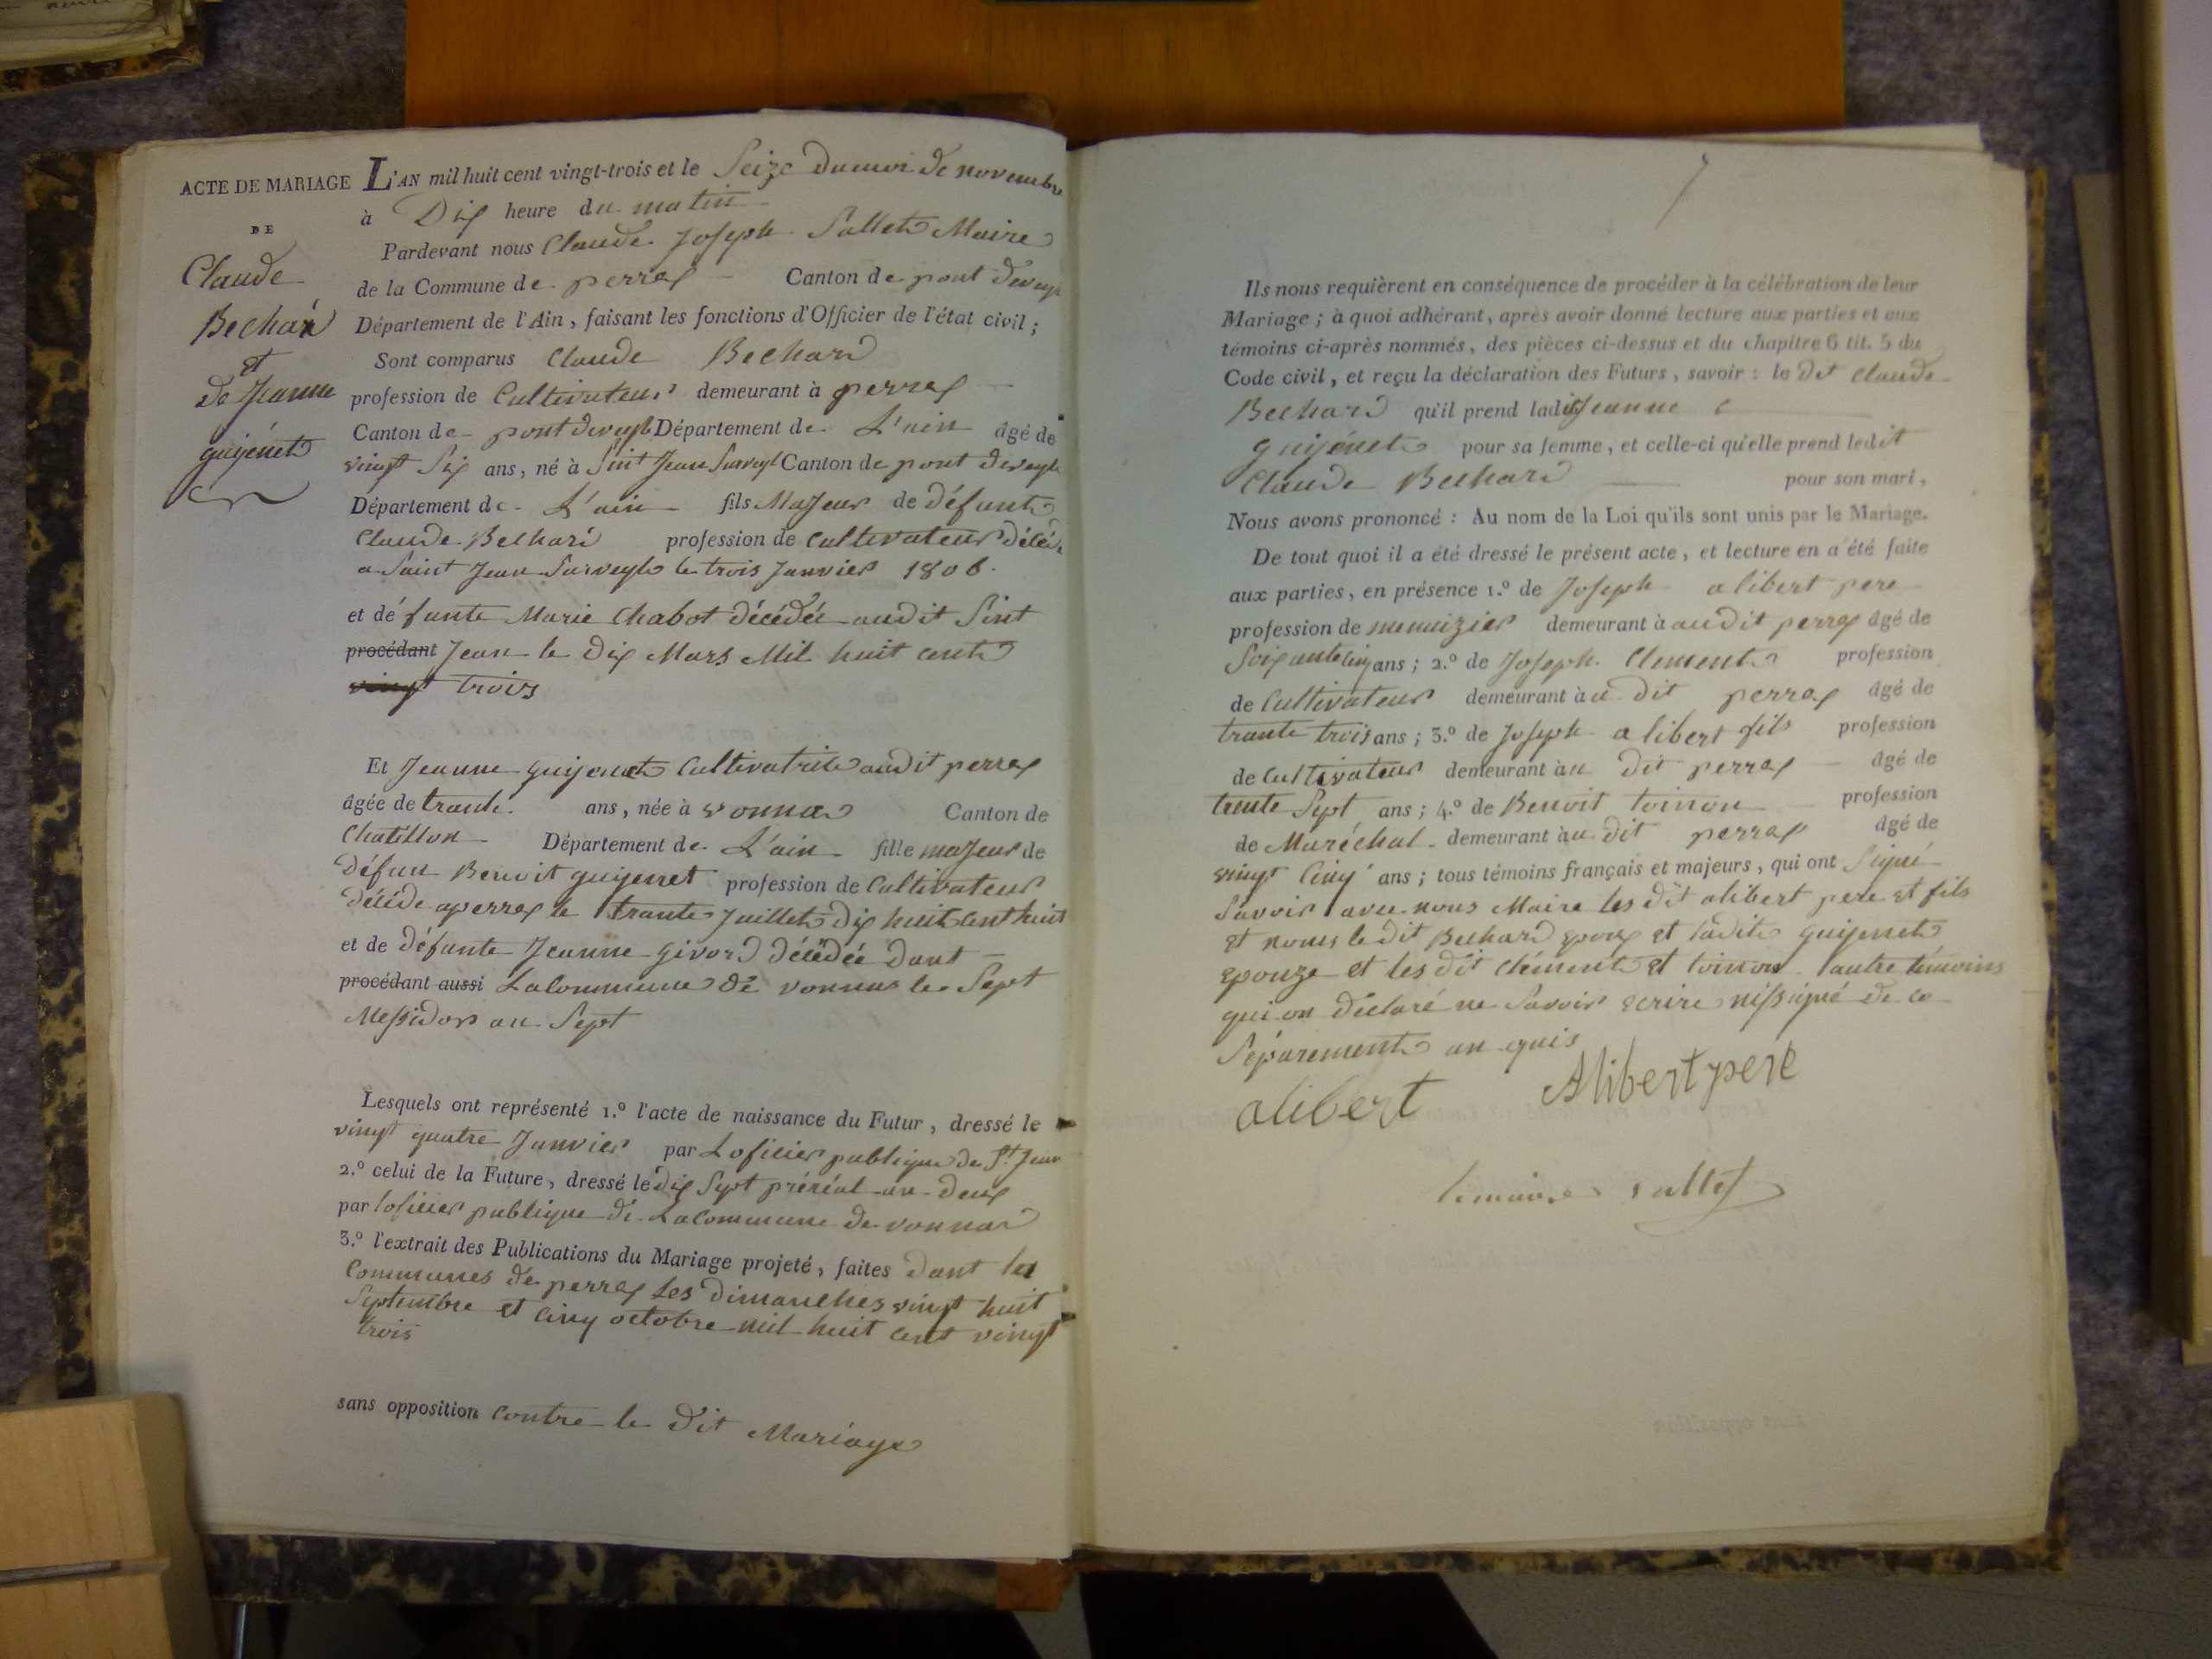 ACTE DE MARIAGE
DE
Claude
Bechard
et
de Jeanne
guijenet
L'AN mil huit cent vingt-trois et le Seize du moi de novembre
à Dix heure du matin
Pardevant nous Claude Joseph Sallet Maire
de la Commune de perrex Canton de pont deveyl
Département de l'Ain, faisant les fonctions d'Officier de l'état civil;
Sont comparus Claude Bechard
profession de Cultivateur demeurant à perrex
Canton de pont deveyl Département de L'ain âgé de
vingt Six ans, né à Sint Jean Surveyl Canton de pont deveyl
Département de L'ain fils Majeur de défunt
Claude Bechard profession de Cultivateur décéd
a Saint Jean Surveyle le trois Janvier 1806.
et défunte Marie Chabot décédée audit Sint
procédant Jean le Dix Mars Mil huit cent
vingt trois
Et Jeanne guijenet Cultivatrice audit perrex
âgée de trante ans, née à vonnas Canton de
Chatillon Département de L'ain fille majeur de
défun Benoit guijenet profession de Cultivateur
décéde a perrex le trante Juillet dix huit cent huit
et de défunte Jeanne givord décédée dant
procédant aussi La Commune de vonnas le Sept
Messidor an Sept
Lesquels ont représenté 1.º l'acte de naissance du Futur, dressé le
vingt quatre Janvier par Loficier publique de St. Jean
2.º celui de la Future, dressé le dix Sept préréal an deux
par loficier publique de La Commune de vonnas
3.º l'extrait des Publications du Mariage projeté, faites dant les
Communes de perrex les dimanches vingt huit
Septembre et cinq octobre mil huit cent vingt
trois
sans opposition contre le dit Mariage
Ils nous requièrent en conséquence de procéder à la célébration de leur
Mariage; à quoi adhérant, après avoir donné lecture aux parties et aux
témoins ci-après nommés, des pièces ci-dessus et du chapitre 6 tit. 5 du
Code civil, et reçu la déclaration des Futurs, savoir: le dit Claude
Bechard qu'il prend ladite Jeanne
guijenet pour sa femme, et celle-ci qu'elle prend ledit
Claude Bechard pour son mari,
Nous avons prononcé: Au nom de la Loi qu'ils sont unis par le Mariage.
De tout quoi il a été dressé le présent acte, et lecture en a été faite
aux parties, en présence 1.º de Joseph alibert pere
profession de menuizier demeurant à audit perrex âgé de
Soixante cinq ans; 2.º de Joseph Clement profession
de Cultivateur demeurant àu dit perrex âgé de
trante trois ans; 3.º de Joseph alibert fils profession
de Cultivateur demeurant àu dit perrex âgé de
trente Sept ans; 4.º de Benoit toinon profession
de Maréchal demeurant àu dit perrex âgé de
vingt Cinq ans; tous témoins français et majeurs, qui ont Signé
Savoir avec nous Maire les dit alibert pere et fils
et nom le dit Bechard epoux et ladite guijenet
epouze et les dit clément et toinon autre témoins
qui on déclaré ne Savoir ecrire ni Signé de ce
Séparement an quis
alibert Alibert pere
le maire Sallet